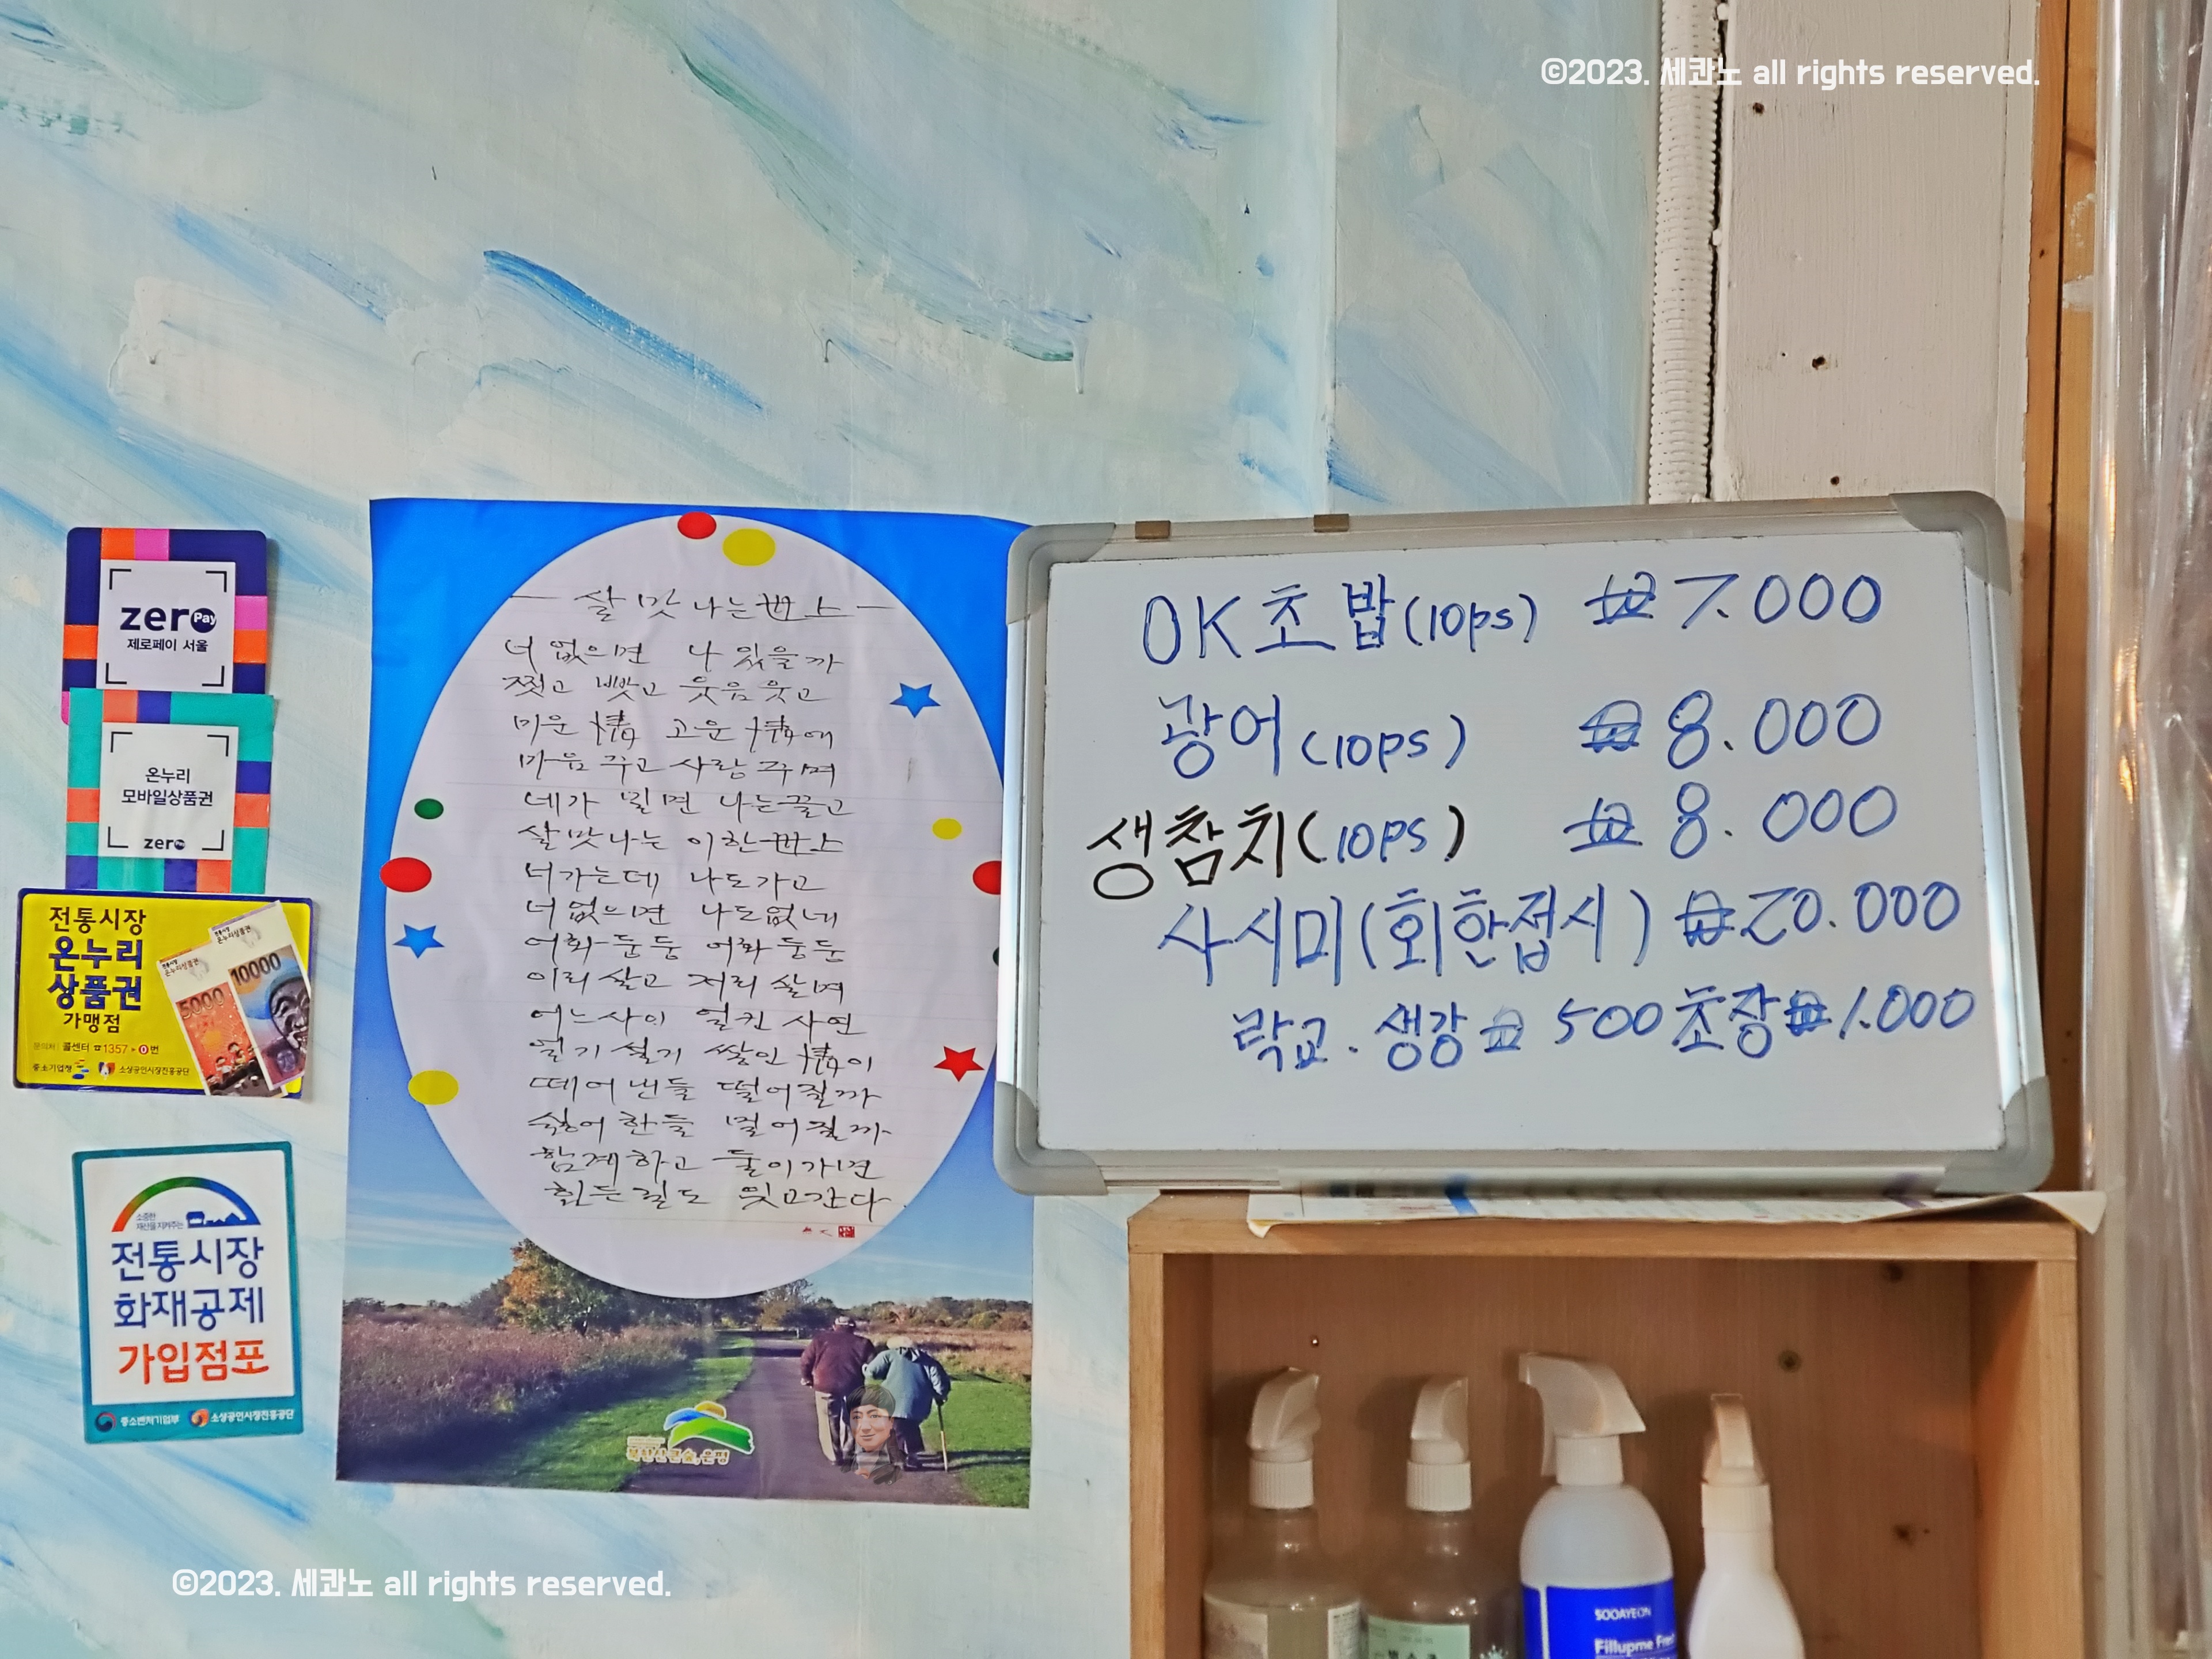 ©2023. 세콴노 all rights reserved.
zero Pay
제로페이 서울
온누리
모바일상품권
zero
전통시장
온누리
상품권
가맹점
문의처 콜센터 ☎1357 ▸ 0번
중소기업청 소상공인시장진흥공단
온누리상품권
5000
온누리상품권
10000
소중한
재산을 지켜주는
전통시장
화재공제
가입점포
중소벤처기업부 소상공인시장진흥공단
살 맛 나는 世上
너 없으면 나 있을까
찧고 빻고 웃음 웃고
미운 情 고운 情에
마음 주고 사랑 주며
네가 밀면 나는 끌고
살맛나는 이한世上
너가는데 나도가고
너 없으면 나도없네
어화둥둥 어화둥둥
이리 살고 저리 살며
어느사이 얼킨 사연
얼기 설기 쌓인 情이
떼어 낸들 떨어질까
싫어 한들 멀어질까
함께하고 둘이가면
힘든 길도 웃고간다
북한산 큰숲, 은평
OK초밥(10ps) ₩7.000
광어(10ps) ₩8.000
생참치(10ps) ₩8.000
사시미(회한접시) ₩20.000
락교. 생강 ₩500 초장 ₩1.000
SOOAYEON
Fillupme
©2023. 세콴노 all rights reserved.